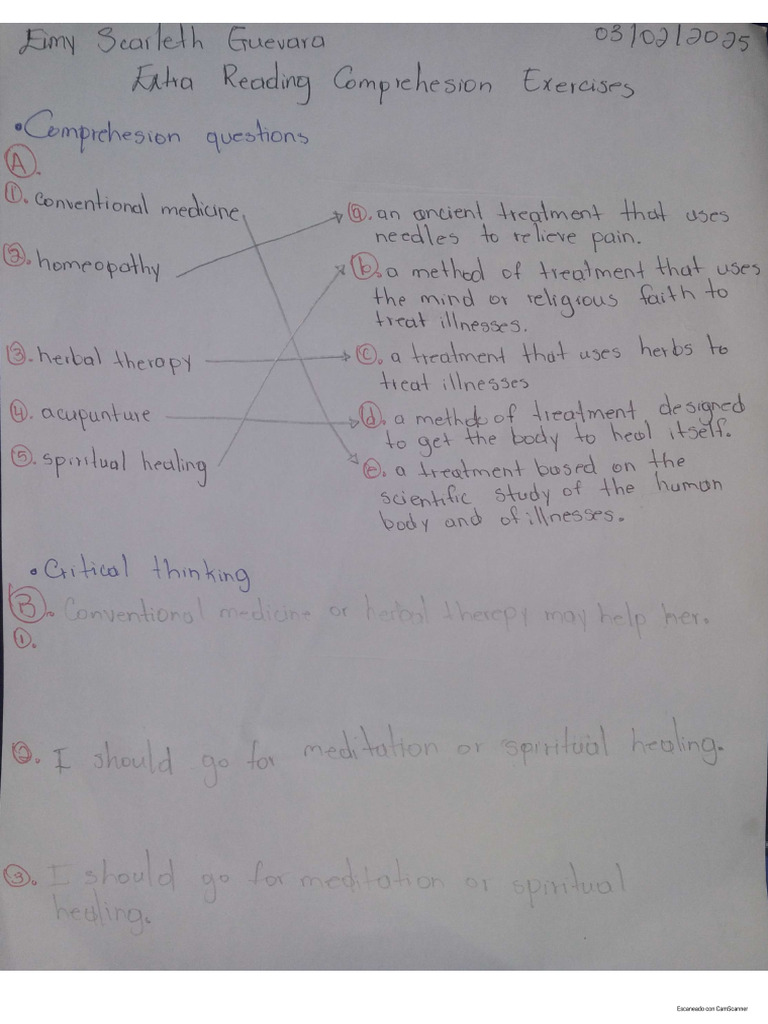 Eimy Scarleth Guevara 03/02/2025
Extra Reading Comprehesion Exercises
• Comprehesion questions
A.
1. conventional medicine
2. homeopathy
3. herbal therapy
4. acupunture
5. spiritual healing
a. an ancient treatment that uses
needles to relieve pain.
b. a method of treatment that uses
the mind or religious faith to
treat illnesses.
c. a treatment that uses herbs to
treat illnesses
d. a methdo of treatment designed
to get the body to heal itself.
e. a treatment based on the
scientific study of the human
body and of illnesses.
• Critical thinking
B. Conventional medicine or herbal therepy may help her.
1.
2. I should go for meditation or spiritual healing.
3. I should go for meditation or spiritual
healing.
Escaneado con CamScanner